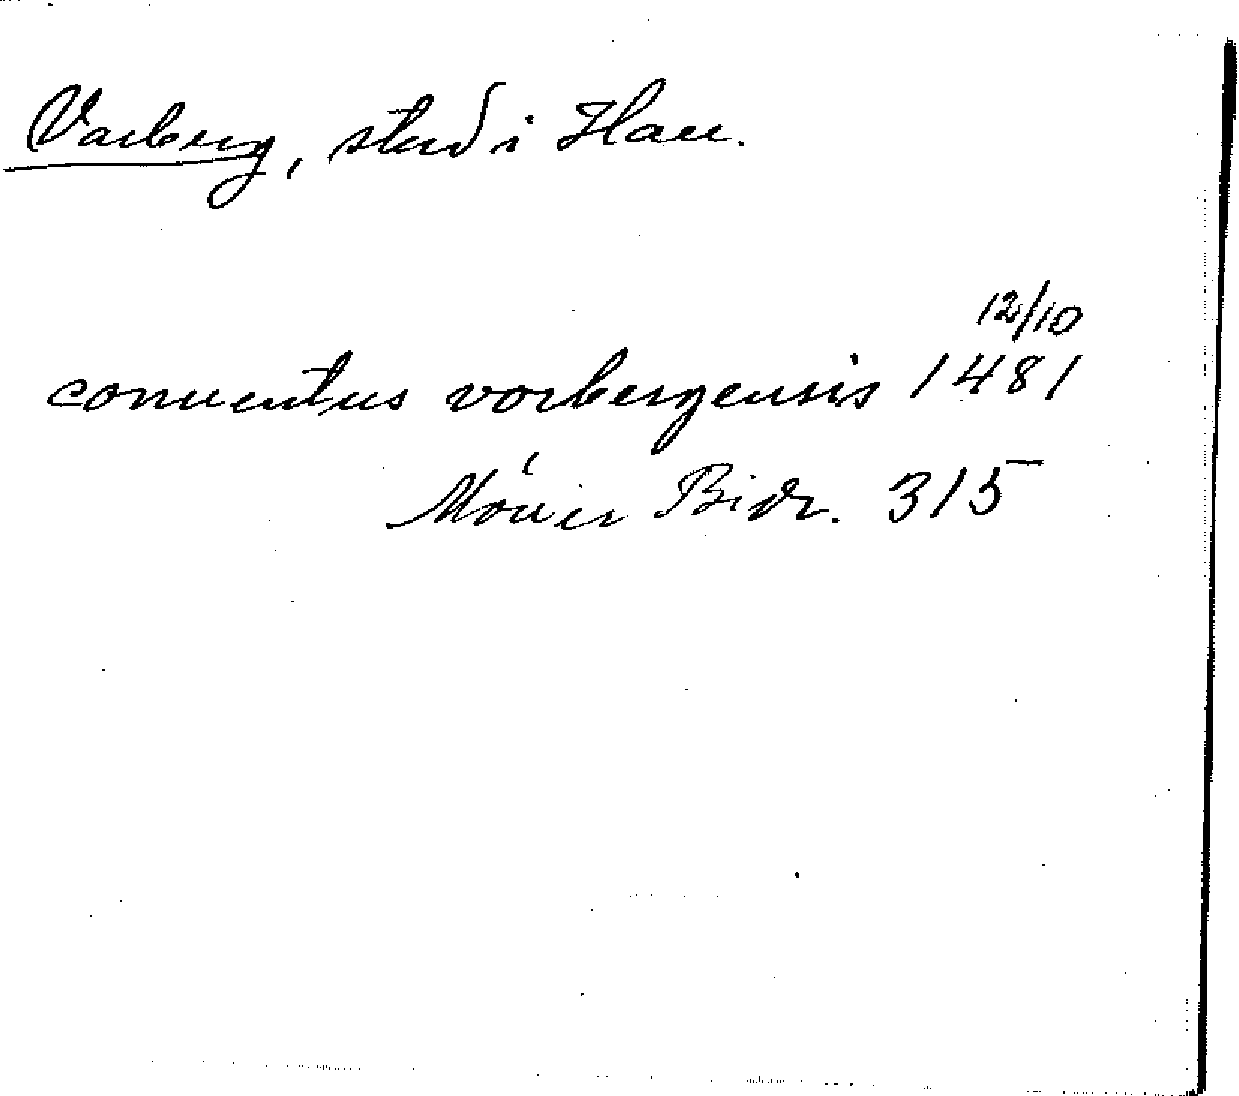 Varberg, stad i Hall.
12/10
conventus vorbergensis 1481
Bidr. 315